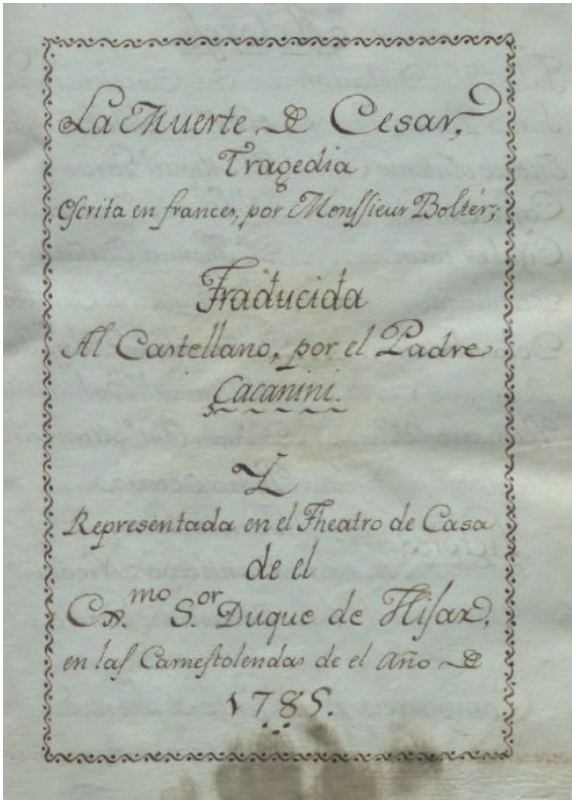 La Muerte de Cesar,
Tragedia
Escrita en frances, por Monssieur Boltér;
Traducida
Al Castellano, por el Padre
Cacanini.
Y
Representada en el Theatro de Casa
de el
Ex.mo S.or Duque de Hijar,
en las Carnestolendas de el Año de
1785.